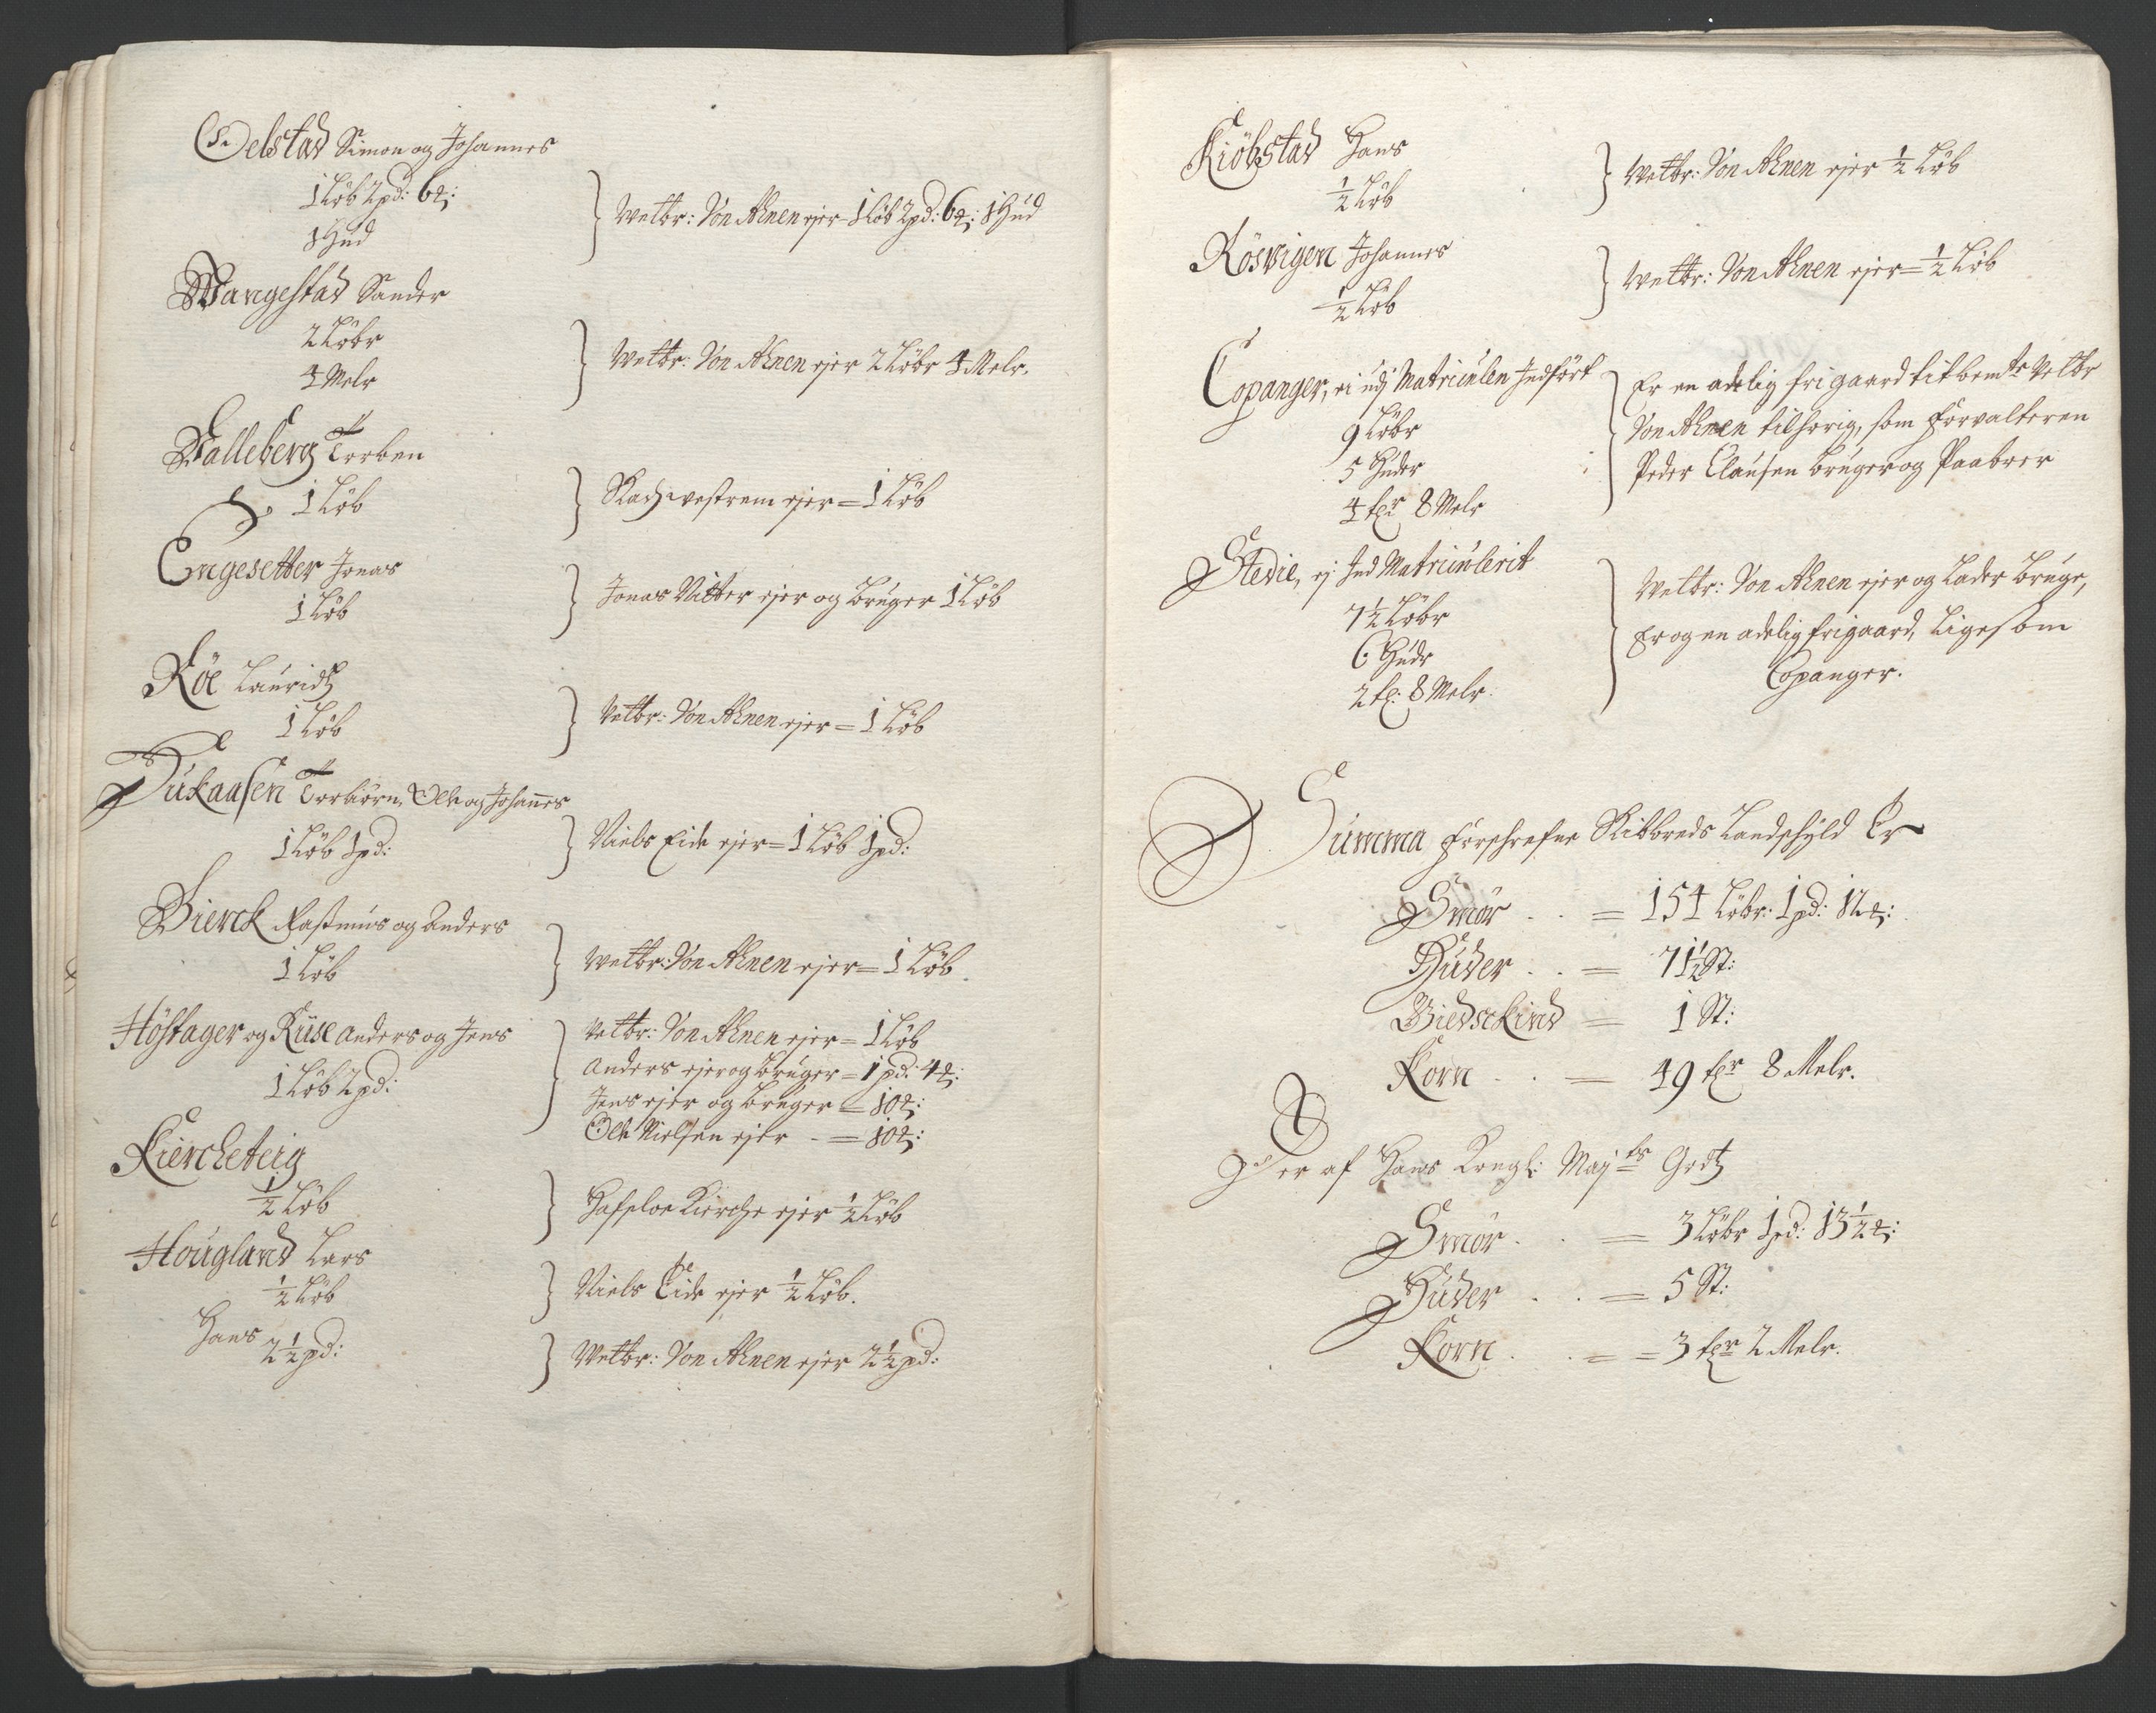 Oelstad Simon og Johannes
1 Løb 2 pd: 6 ℔:
1 Hud
Welbr: Von Ahnen ejer 1 Løb 2 pd: 6 ℔: 1 Hud
Wangestad Sander
2 Løbr
4 Melr
Welbr: Von Ahnen ejer 2 Løbr 4 Melr.
Valleberg Torben
1 Løb
ejer = 1 Løb
Engesetter Jonas
1 Løb
Jonas Nitter ejer og bruger 1 Løb
Röe Lauridz
1 Løb
Velbr: Von Ahnen ejer = 1 Løb
Dukaasen Torbiörn, Ole og Johañes
1 Løb 1 pd:
Niels Eide ejer = 1 Løb 1 pd:
Bierck Rasmus og Anders
1 Løb
Welbr: Von Ahnen ejer = 1 Løb.
Höstager og Kuse Anders og Jens
1 Løb 2 pd:
Velbr: Von Ahnen ejer = 1 Løb
Anders ejer og bruger = 1 pd: 4 ℔:
Jens ejer og bruger = 10 ℔:
Ole Nielsen ejer - = 10 ℔:
Kiercheteig
½ Løb
Hafsloe Kierche ejer ½ Løb
Hougland Lars
½ Løb
Niels Eide ejer ½ Løb.
Hans
2½ pd:
Welbr: Von Ahnen ejer 2½ pd:
Kiöbstad Hans
½ Løb
Welbr: Von Ahnen ejer ½ Løb
Rösvigen Johannes
½ Løb
Welbr: Von Ahnen ejer = ½ Løb
Copanger, ei udj Matriculen Indfört
9 Løbr
5 Huder
4 tr 8 Melr
Er en adelig frigaard titbemte Velbr
Von Ahnen tilhørig, som Forvalteren
Peder Clausen bruger og Paaboer
Stedie, ej Ind Matriculerit
7½ Løbr
6 Hudr
2 t: 8 Melr.
Velbr: Von Ahnen ejer og Lader bruge,
Er og en adelig frigaard, Ligesom
Copanger.
Summa forschrefne Skibreds Landschyld Er
Smør . . = 154 Løbr: 1 pd: 12 ℔:
Huder . . = 71½ St:
Biedschind = 1 St:
Korn - . = 49 tr 8 Melr.
Der af Hans Kongl: Mayts Godtz
Smør . . = 3 Løbr 1 pd: 13½ ℔:
Huder . . = 5 St:
Korn . . = = 3 tr 2 Melr.